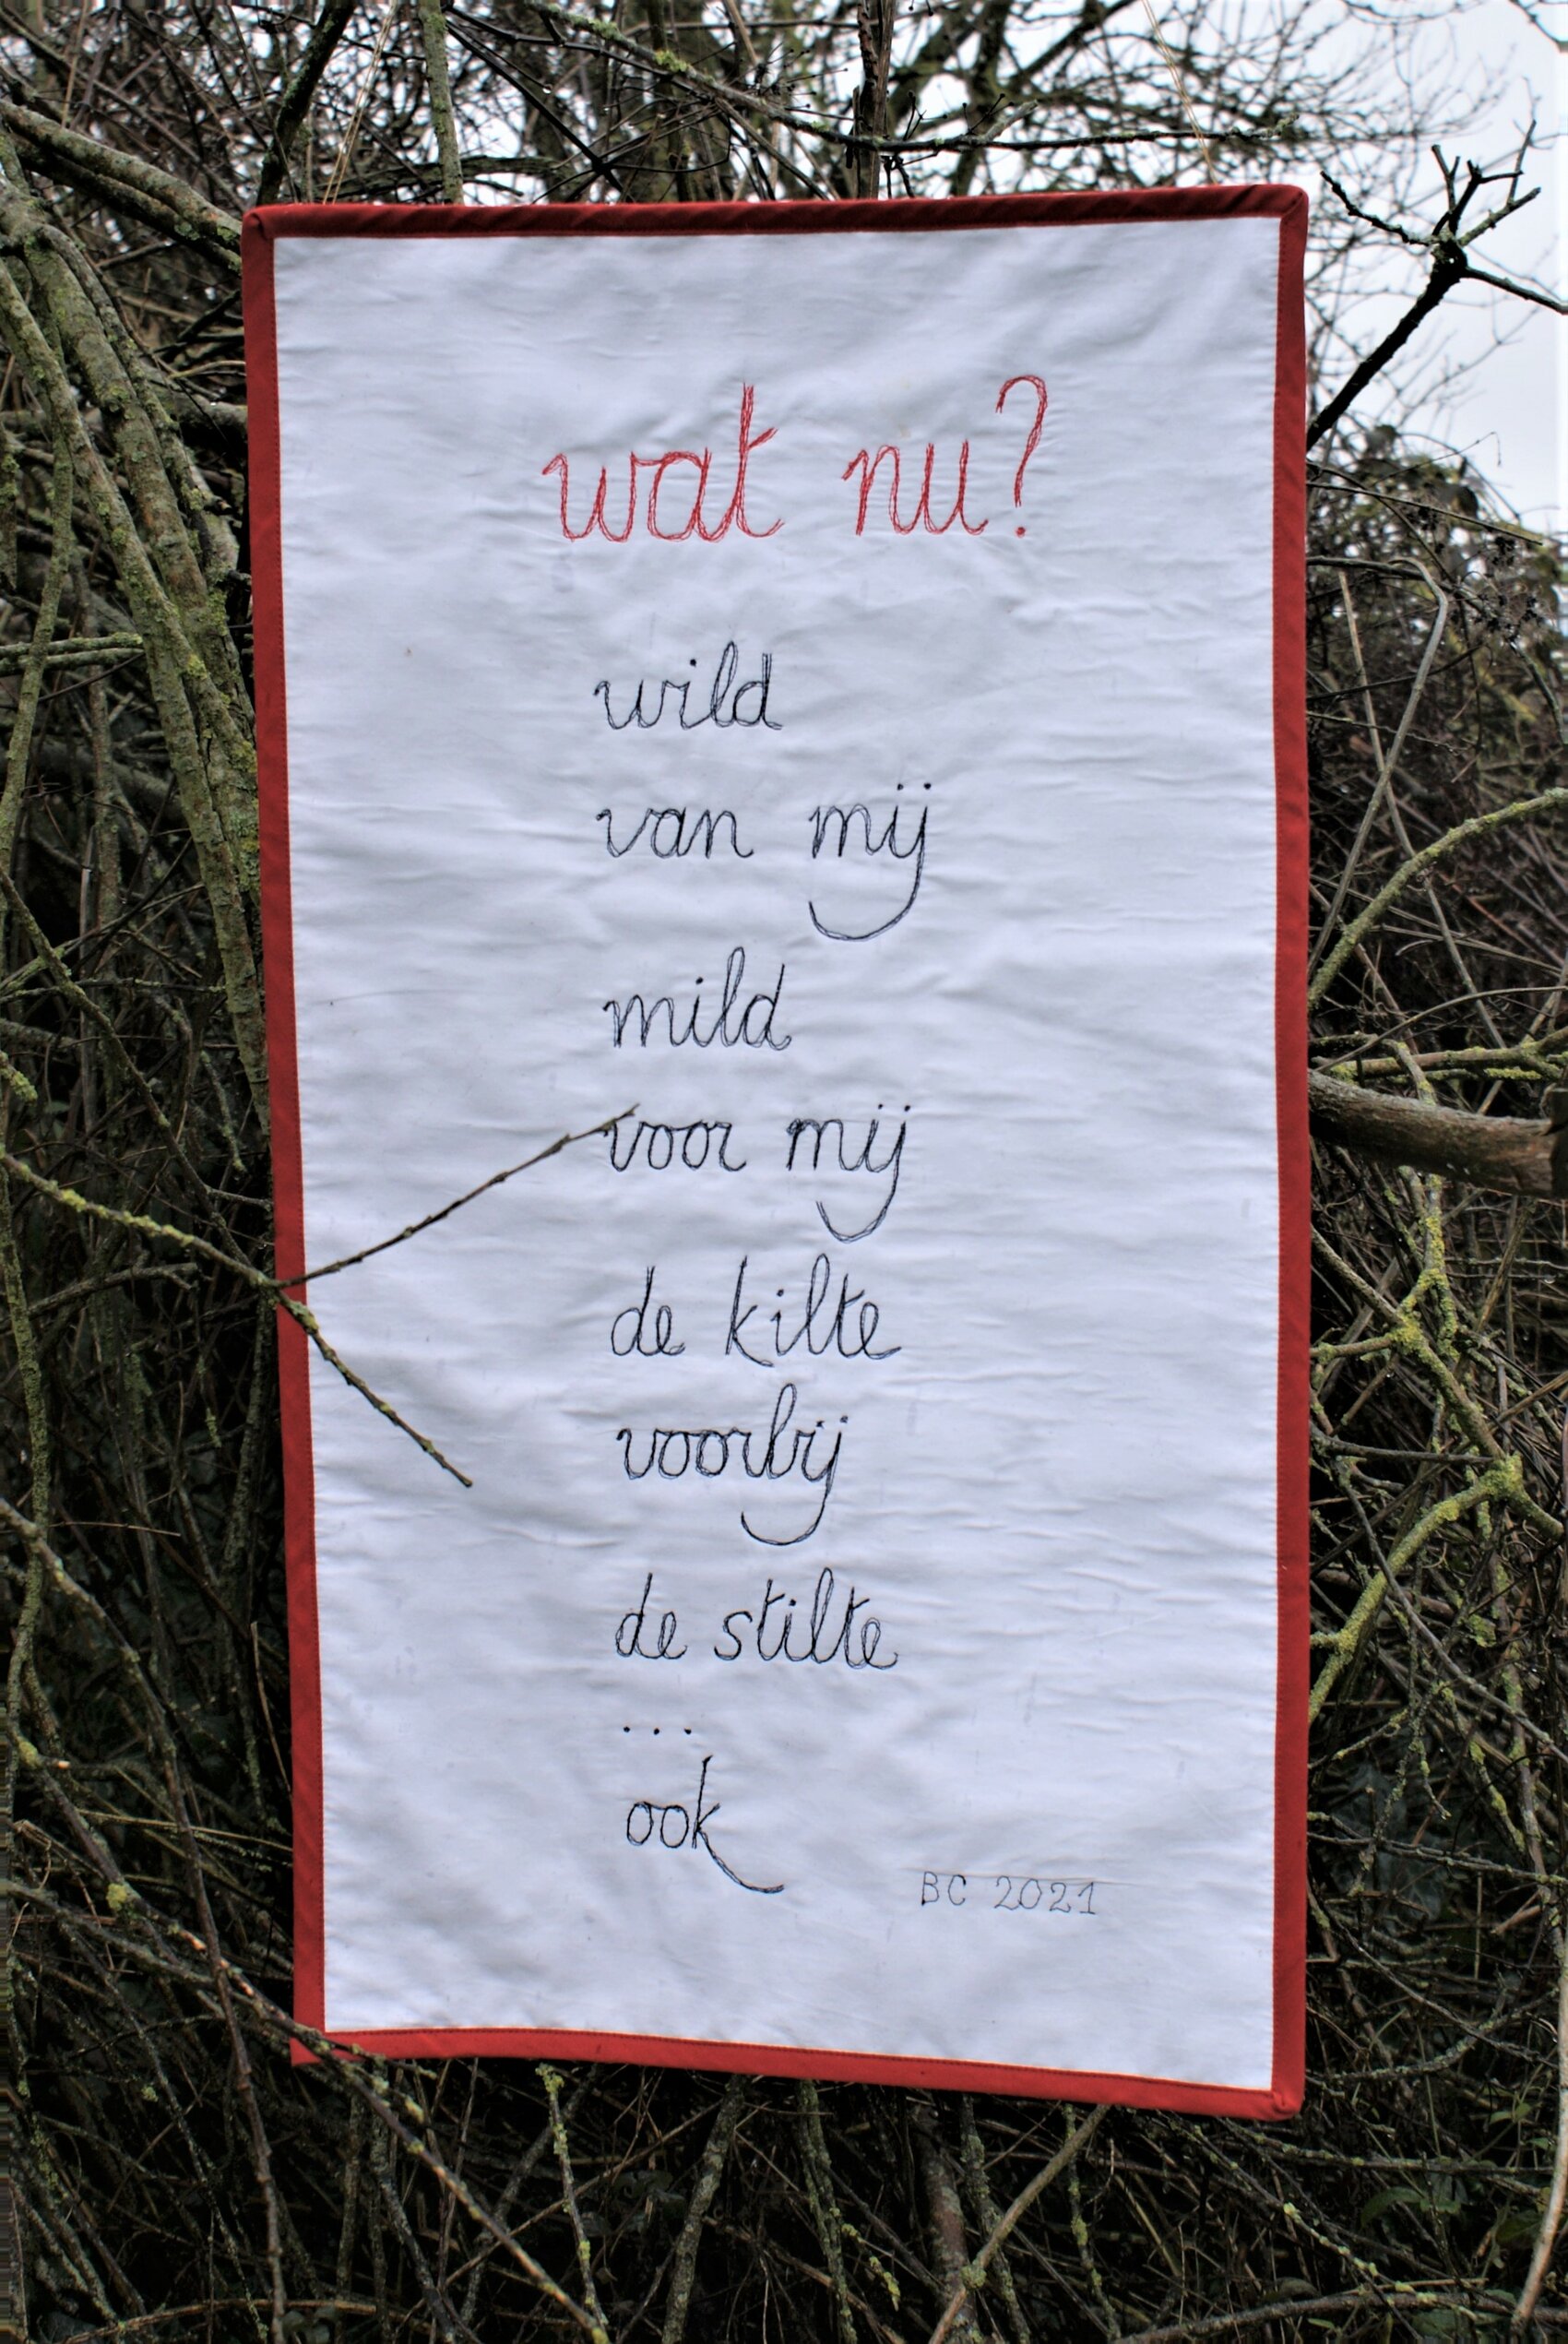 wat nu?
wild
van mij
mild
voor mij
de kilte
voorbij
de stilte
...
ook
BC 2021